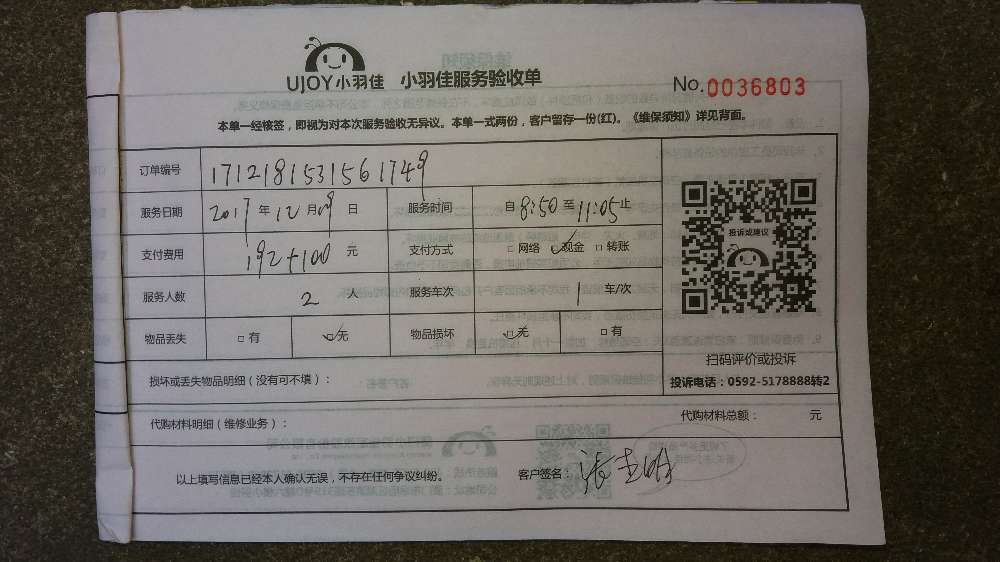 UJOY小羽佳 小羽佳服务验收单
No.0036803
本单一经核签，即视为对本次服务验收无异议。本单一式两份，客户留存一份(红)。《维保须知》详见背面。
订单编号 1712181531561749
服务日期 2017年12月19日 服务时间 自8:50至11:05止
支付费用 192+100元 支付方式 □网络 ☑现金 □转账
服务人数 2人 服务车次 1车/次
物品丢失 □有 ☑无 物品损坏 ☑无 □有
投诉或建议
扫码评价或投诉
投诉电话：0592-5178888转2
损坏或丢失物品明细（没有可不填）：
代购材料明细（维修业务）： 代购材料总额： 元
以上填写信息已经本人确认无误，不存在任何争议纠纷。 客户签名：张